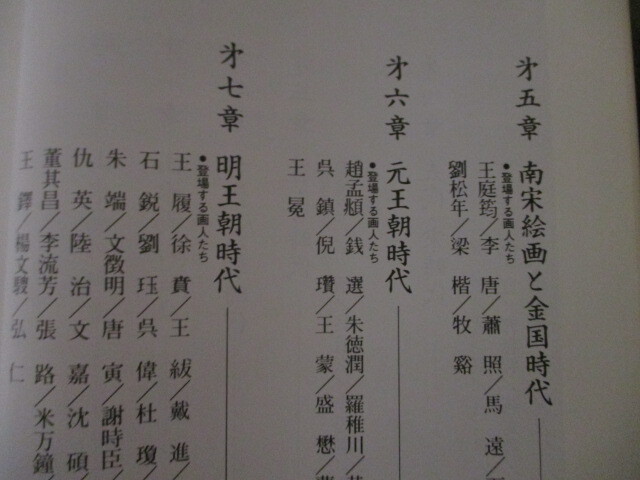 第五章 南宋絵画と金国時代
●登場する画人たち
王庭筠／李 唐／蕭 照／馬 遠／
劉松年／梁 楷／牧 谿
第六章 元王朝時代
●登場する画人たち
趙孟頫／銭 選／朱徳潤／羅稚川／
呉 鎮／倪 瓚／王 蒙／盛 懋／
王 冕
第七章 明王朝時代
●登場する画人たち
王 履／徐 賁／王 紱／戴 進／
石 鋭／劉 珏／呉 偉／杜 瓊／
朱 端／文徴明／唐 寅／謝時臣／
仇 英／陸 治／文 嘉／沈 碩／
董其昌／李流芳／張 路／米万鐘／
王 鐸／楊文驄／弘 仁